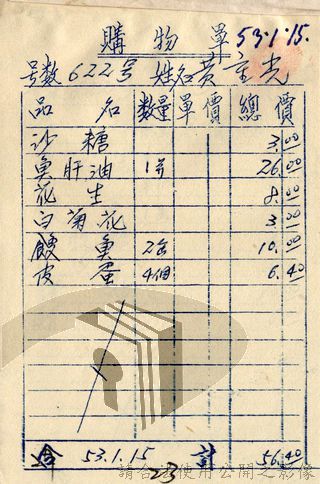 購物單 53.1.15.
号数 622号 姓名 黄主光
品名 数量 單價 總價
沙糖 3.00
魚肝油 1 26.00
花生 8.00
白菊花 3.00
魚 2 10.00
皮蛋 4個 6.40
合 53.1.15 計 56.40
23
請合 使用公開之影像